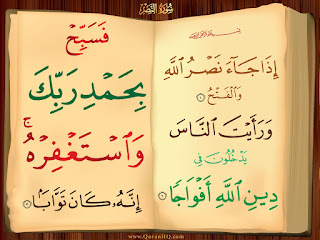 سُورَةُ النَّصْرِ
إِذَا جَآءَ نَصْرُ اللَّهِ
وَالْفَتْحُ ١
وَرَأَيْتَ النَّاسَ
يَدْخُلُونَ فِي
دِينِ اللَّهِ أَفْوَاجًا ٢
فَسَبِّحْ
بِحَمْدِ رَبِّكَ
وَاسْتَغْفِرْهُ ۚ
إِنَّهُ كَانَ تَوَّابًا ٣
© www.QuranHQ.com